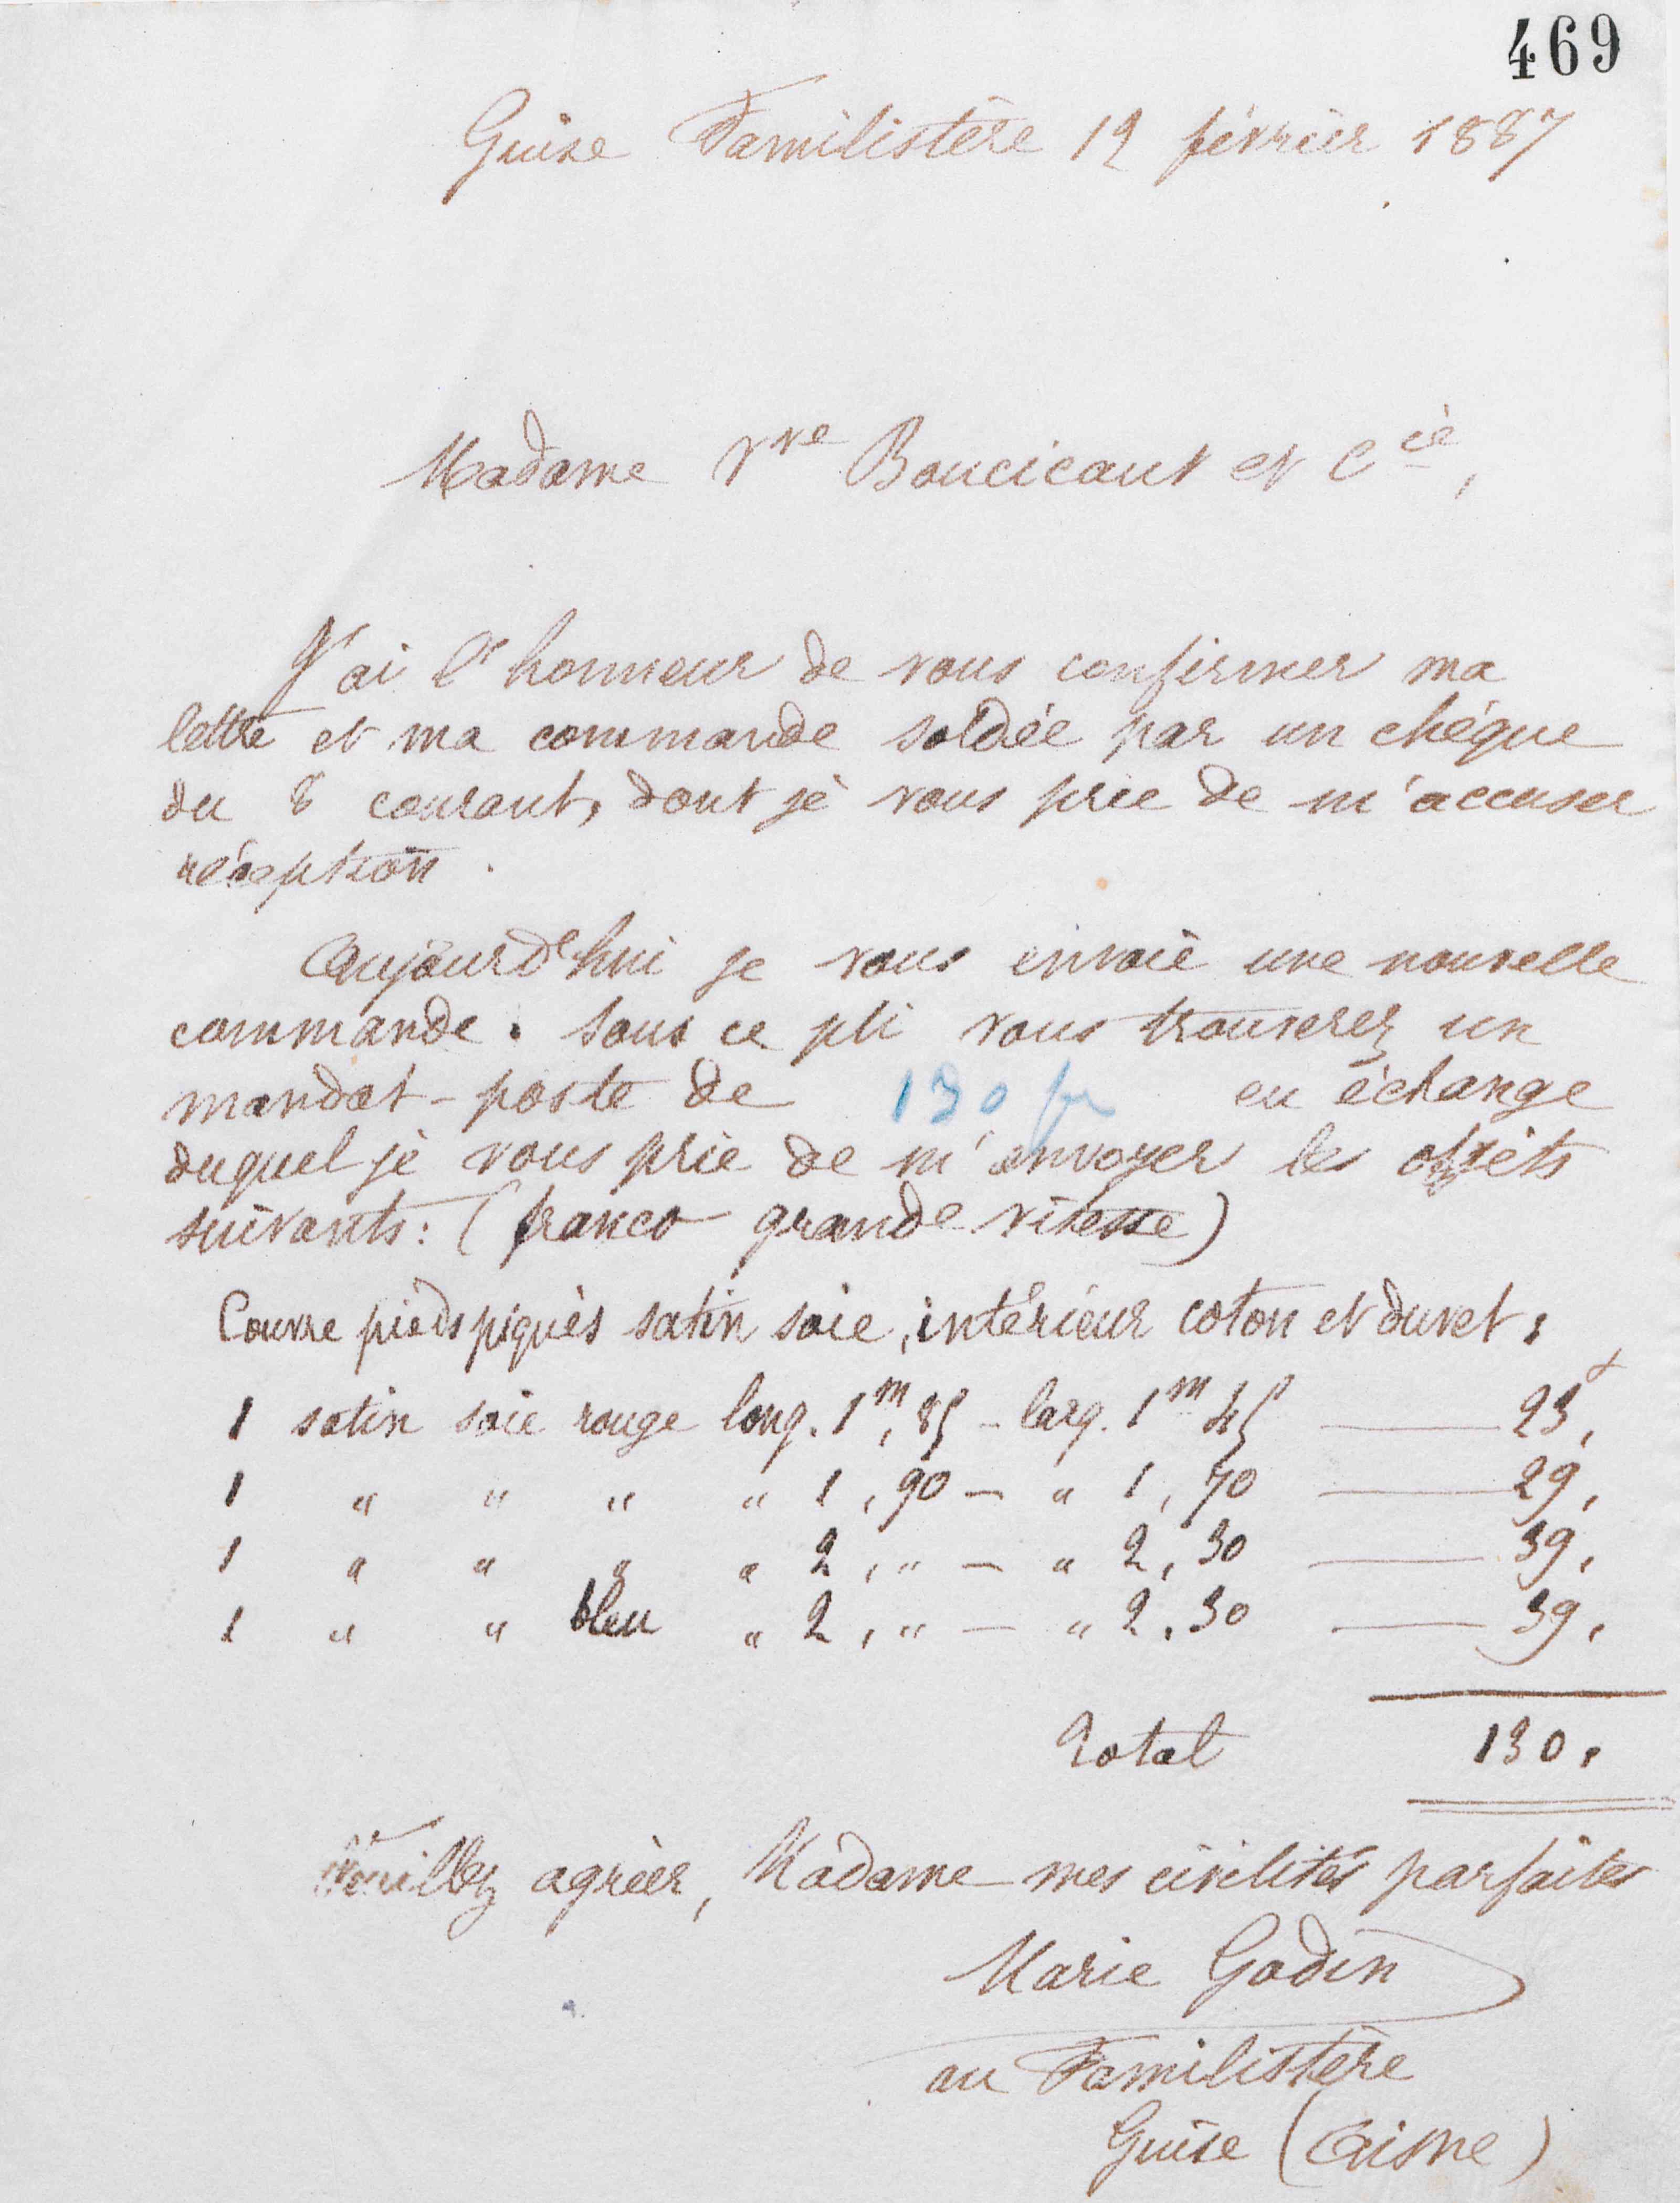 469
Guise Familistère 12 février 1887
Madame Vve Boucicaut et Cie,
J'ai l'honneur de vous confirmer ma
lettre et ma commande soldée par un chèque
du 8 courant, dont je vous prie de m'accuser
réception.
Aujourd'hui je vous envoie une nouvelle
commande. Sous ce pli vous trouverez un
mandat-poste de 130 fr en échange
duquel je vous prie de m'envoyer les objets
suivants: (franco grande vitesse)
Couvre pieds piqués satin soie, intérieur coton et duvet:
1 satin soie rouge long. 1m,85 – larg. 1m 45 — 23,
1 " " " " 1,90 – " 1,70 — 29,
1 " " " " 2," – " 2,30 — 39,
1 " " bleu " 2," – " 2.30 — 39,
Total 130.
Veuillez agréer, Madame mes civilités parfaites
Marie Godin
au Familistère
Guise (Aisne)